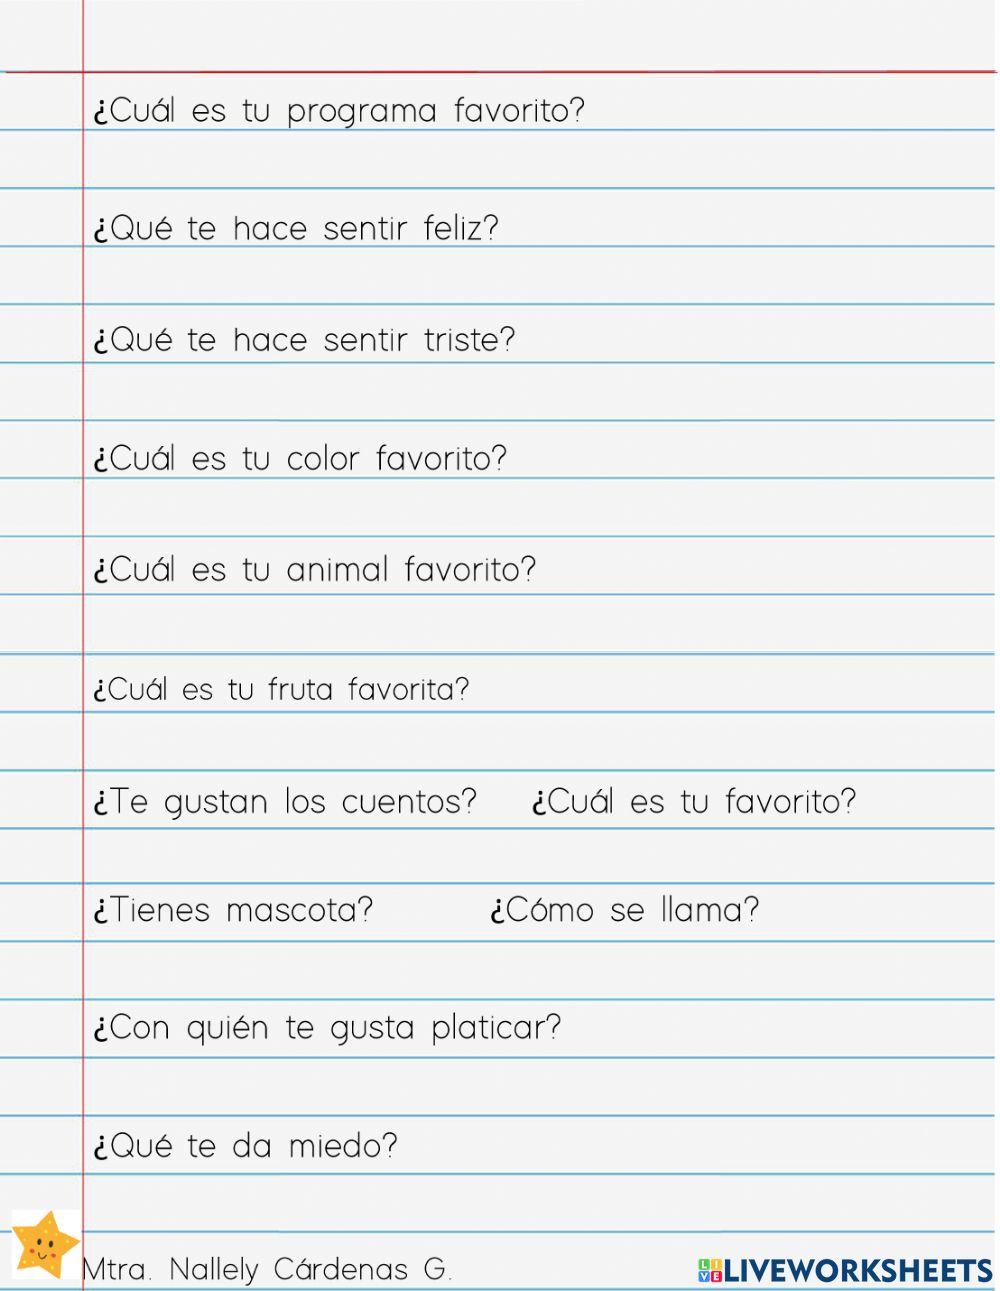 ¿Cuál es tu programa favorito?
¿Qué te hace sentir feliz?
¿Qué te hace sentir triste?
¿Cuál es tu color favorito?
¿Cuál es tu animal favorito?
¿Cuál es tu fruta favorita?
¿Te gustan los cuentos? ¿Cuál es tu favorito?
¿Tienes mascota? ¿Cómo se llama?
¿Con quién te gusta platicar?
¿Qué te da miedo?
Mtra. Nallely Cárdenas G.
LIVE LIVEWORKSHEETS